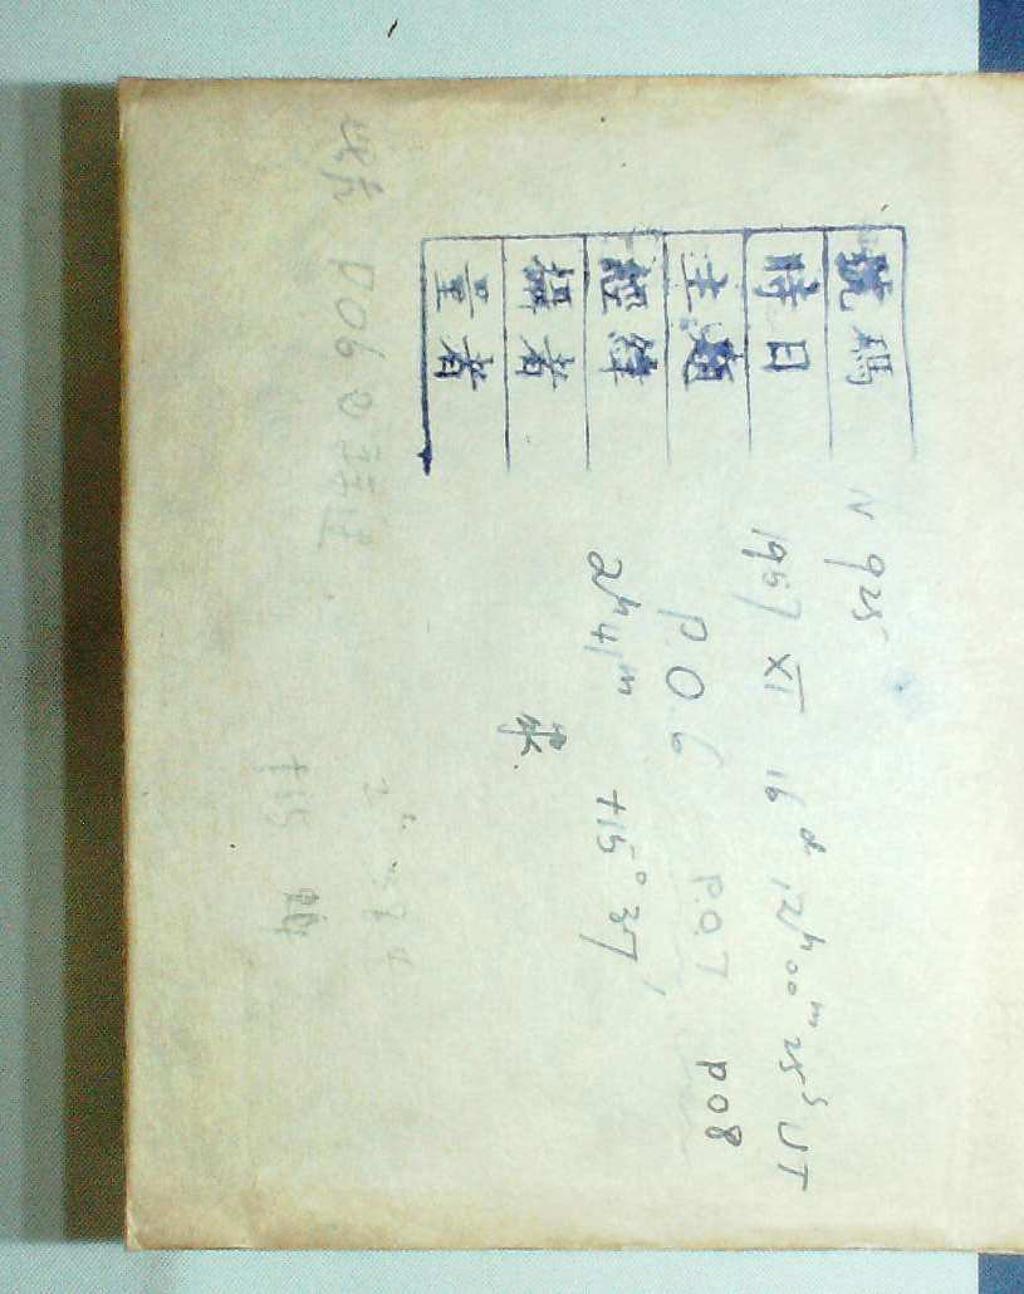 號碼 N 925
時日 1957 XI 16d 12h00m25s UT
主題 P06 P07 P08
經緯 2h41m +15°37'
攝者
量者
P06 0
+15